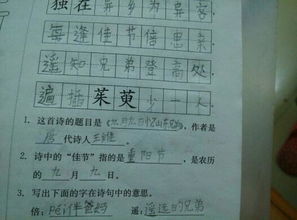 独在异乡为异客
每逢佳节倍思亲
遥知兄弟登高处
遍插茱萸少一人
1. 这首诗的题目是《九月九日忆山东兄弟》，作者是
唐 代诗人 王维 。
2. 诗中的“佳节”指的是 重阳节 ，是农历
的 九 月 九 日。
3. 写出下面的字在诗句中的意思。
倍： 陪伴爸妈 遥： 遥远的兄弟